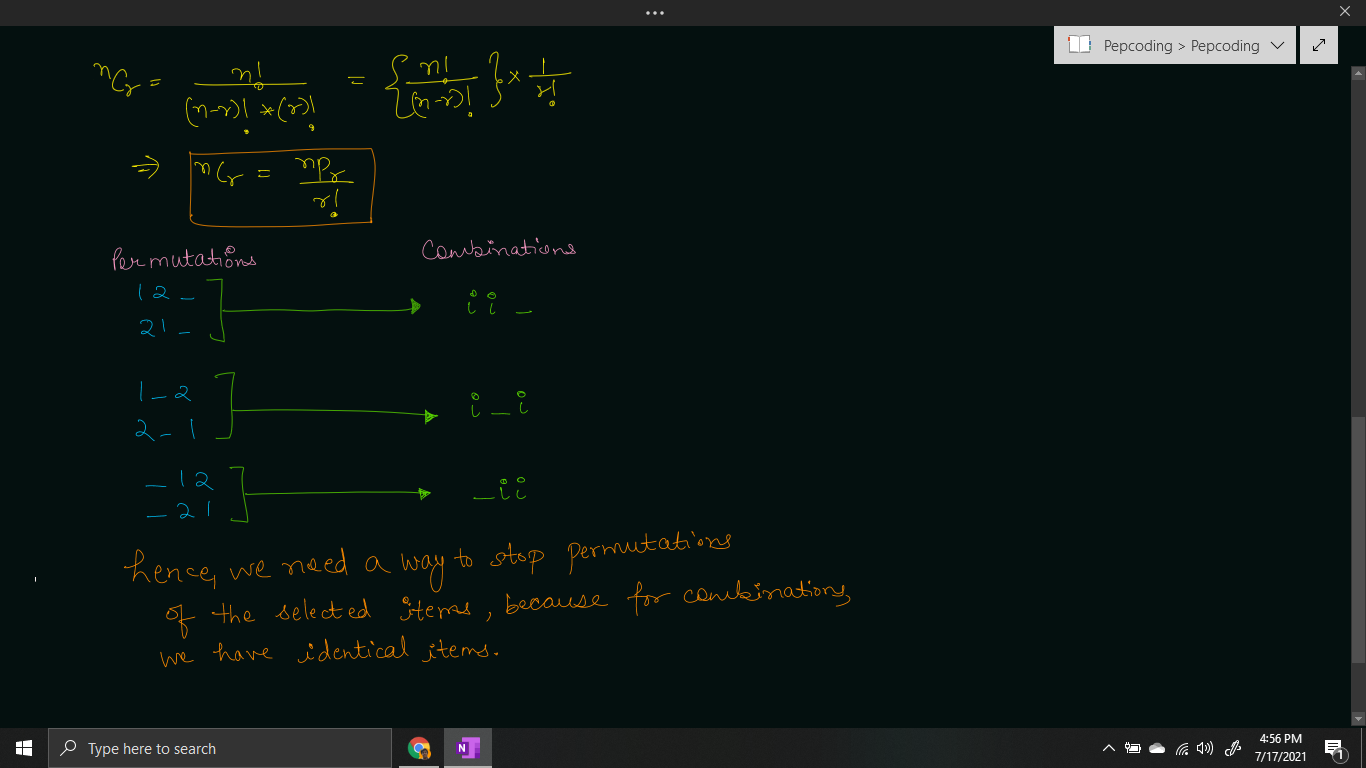 Pepcoding > Pepcoding
nCr = n! / (n-r)! * (r)! = { n! / (n-r)! } × 1 / r!
⇒ nCr = nPr / r!
Permutations Combinations
1 2 _
2 1 _
i i _
1 _ 2
2 _ 1
i _ i
_ 1 2
_ 2 1
_ i i
hence, we need a way to stop permutations
of the selected items, because for combinations,
we have identical items.
Type here to search
4:56 PM
7/17/2021
1